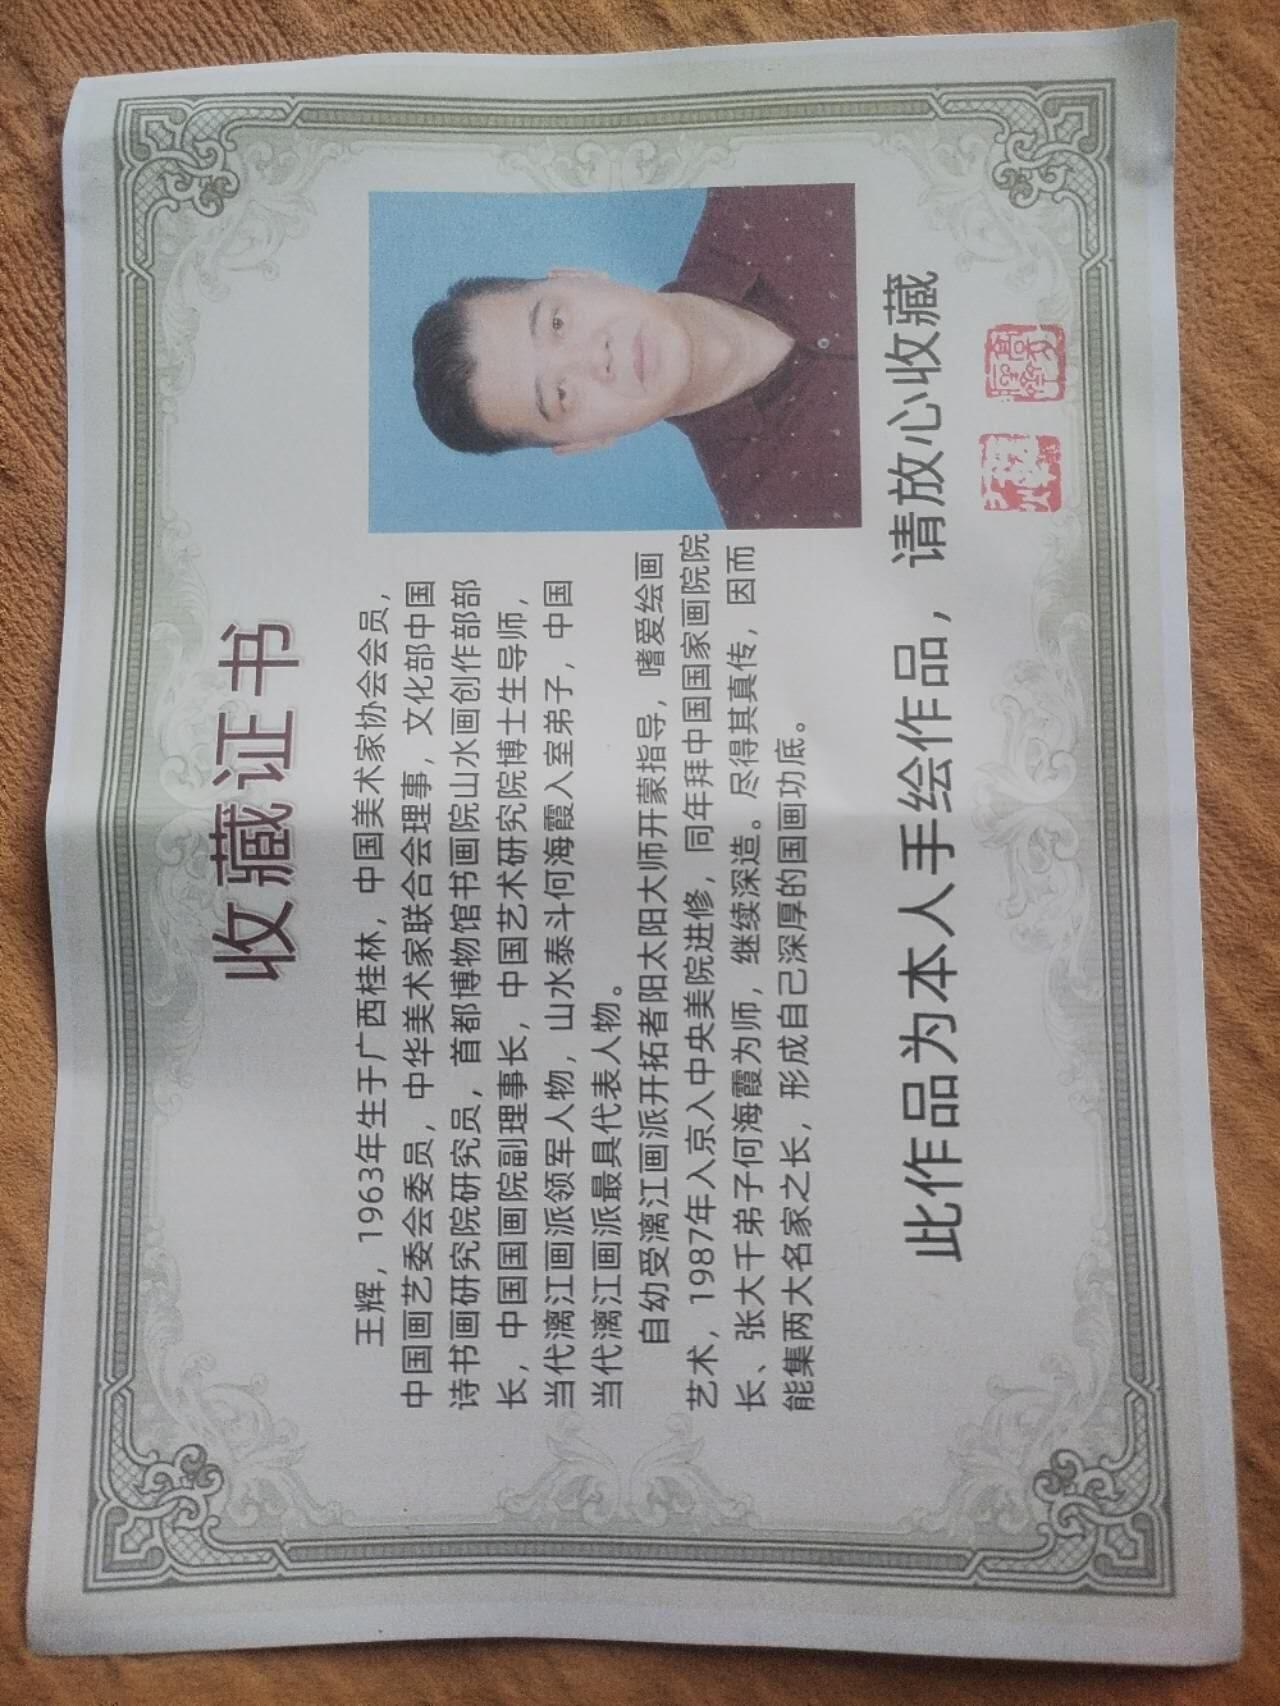 收藏证书
王辉，1963年生于广西桂林，中国美术家协会会员，
中国画艺委会委员，中华美术家联合会理事，文化部中国
诗书画研究院研究员，首都博物馆书画院山水画创作部部
长，中国国画院副理事长，中国艺术研究院博士生导师，
当代漓江画派领军人物，山水泰斗何海霞入室弟子，中国
当代漓江画派最具代表人物。
自幼受漓江画派开拓者阳太阳大师开蒙指导，嗜爱绘画
艺术，1987年入京入中央美院进修，同年拜中国国家画院院
长、张大千弟子何海霞为师，继续深造。尽得其真传，因而
能集两大名家之长，形成自己深厚的国画功底。
此作品为本人手绘作品，请放心收藏